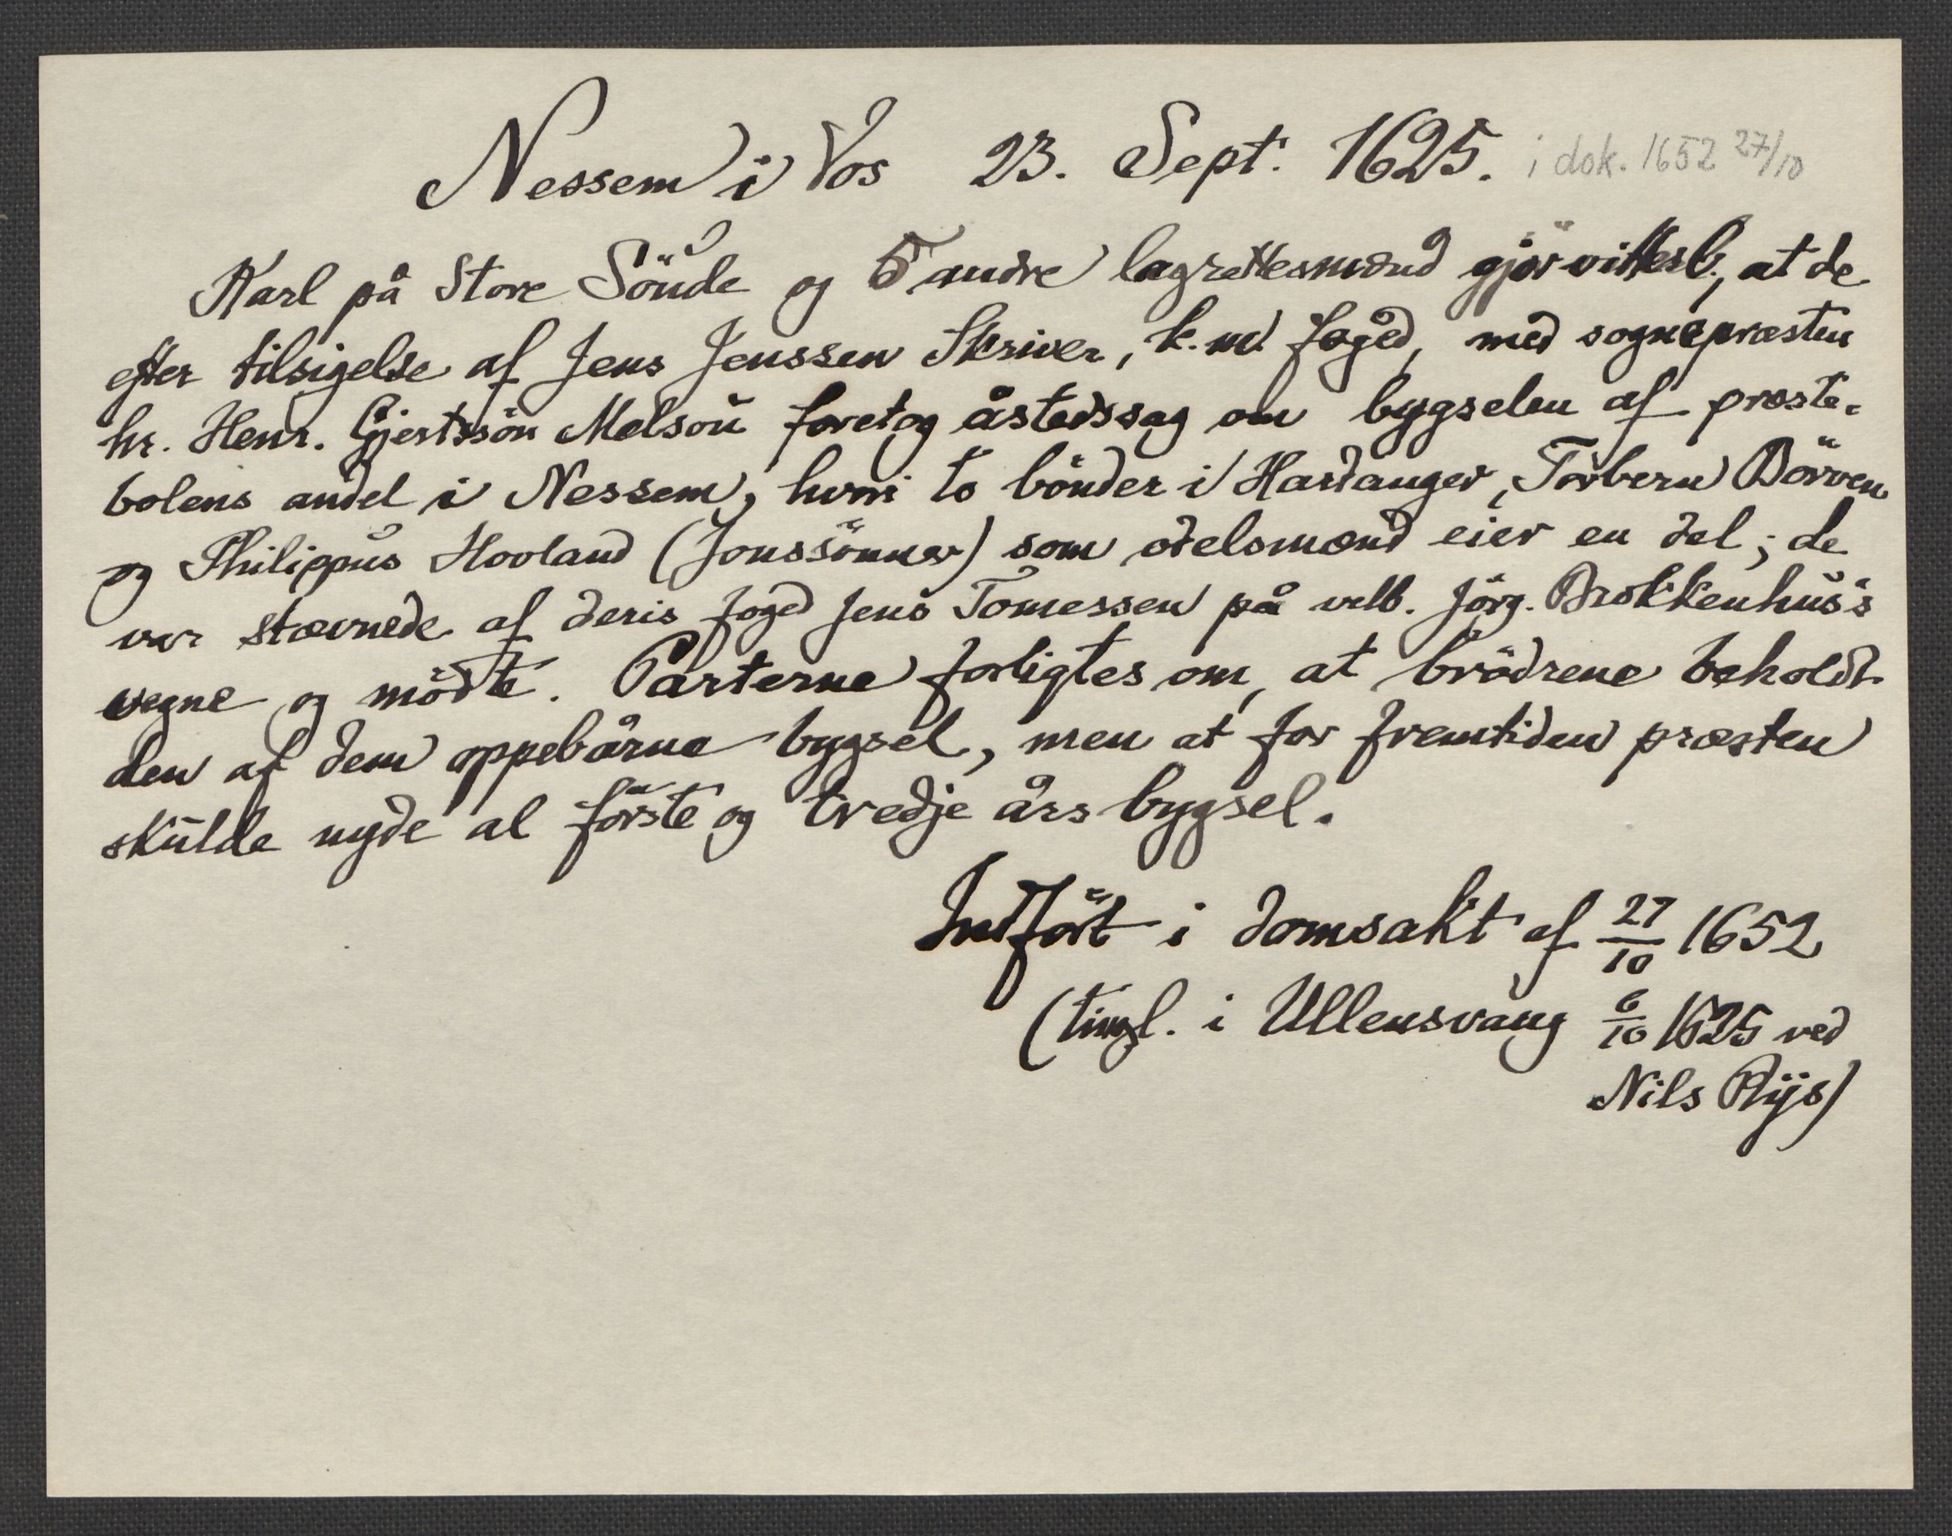 Nessem i Vos 23. Sept. 1625. i dok. 1652 27/10
Karl på Store Sönde og 5 andre lagrettesmænd gjör vitterl., at de
efter tilsigelse af Jens Jenssen Skriver, k. m. foged, med sognepræsten
hr. Henr. Gjertssön Melsou foretog åstedssag om bygselen af præste-
bolens andel i Nessem, hvori to bönder i Hardanger, Torbern Börven
og Philippus Hovland (Jonssönner) som odelsmænd eier en del; de
var stævnede af deris foged Jens Tomessen på velb. Jörg. Brokkenhus's
vegne og mödte. Parterne forligtes om, at brödrene beholdt
den af dem oppebårne bygsel, men at for fremtiden præsten
skulde nyde al förste og tredje års bygsel.
Indfört i domsakt af 27/10 1652
(tingl. i Ullensvang 6/10 1625 ved
Nils Rijs)